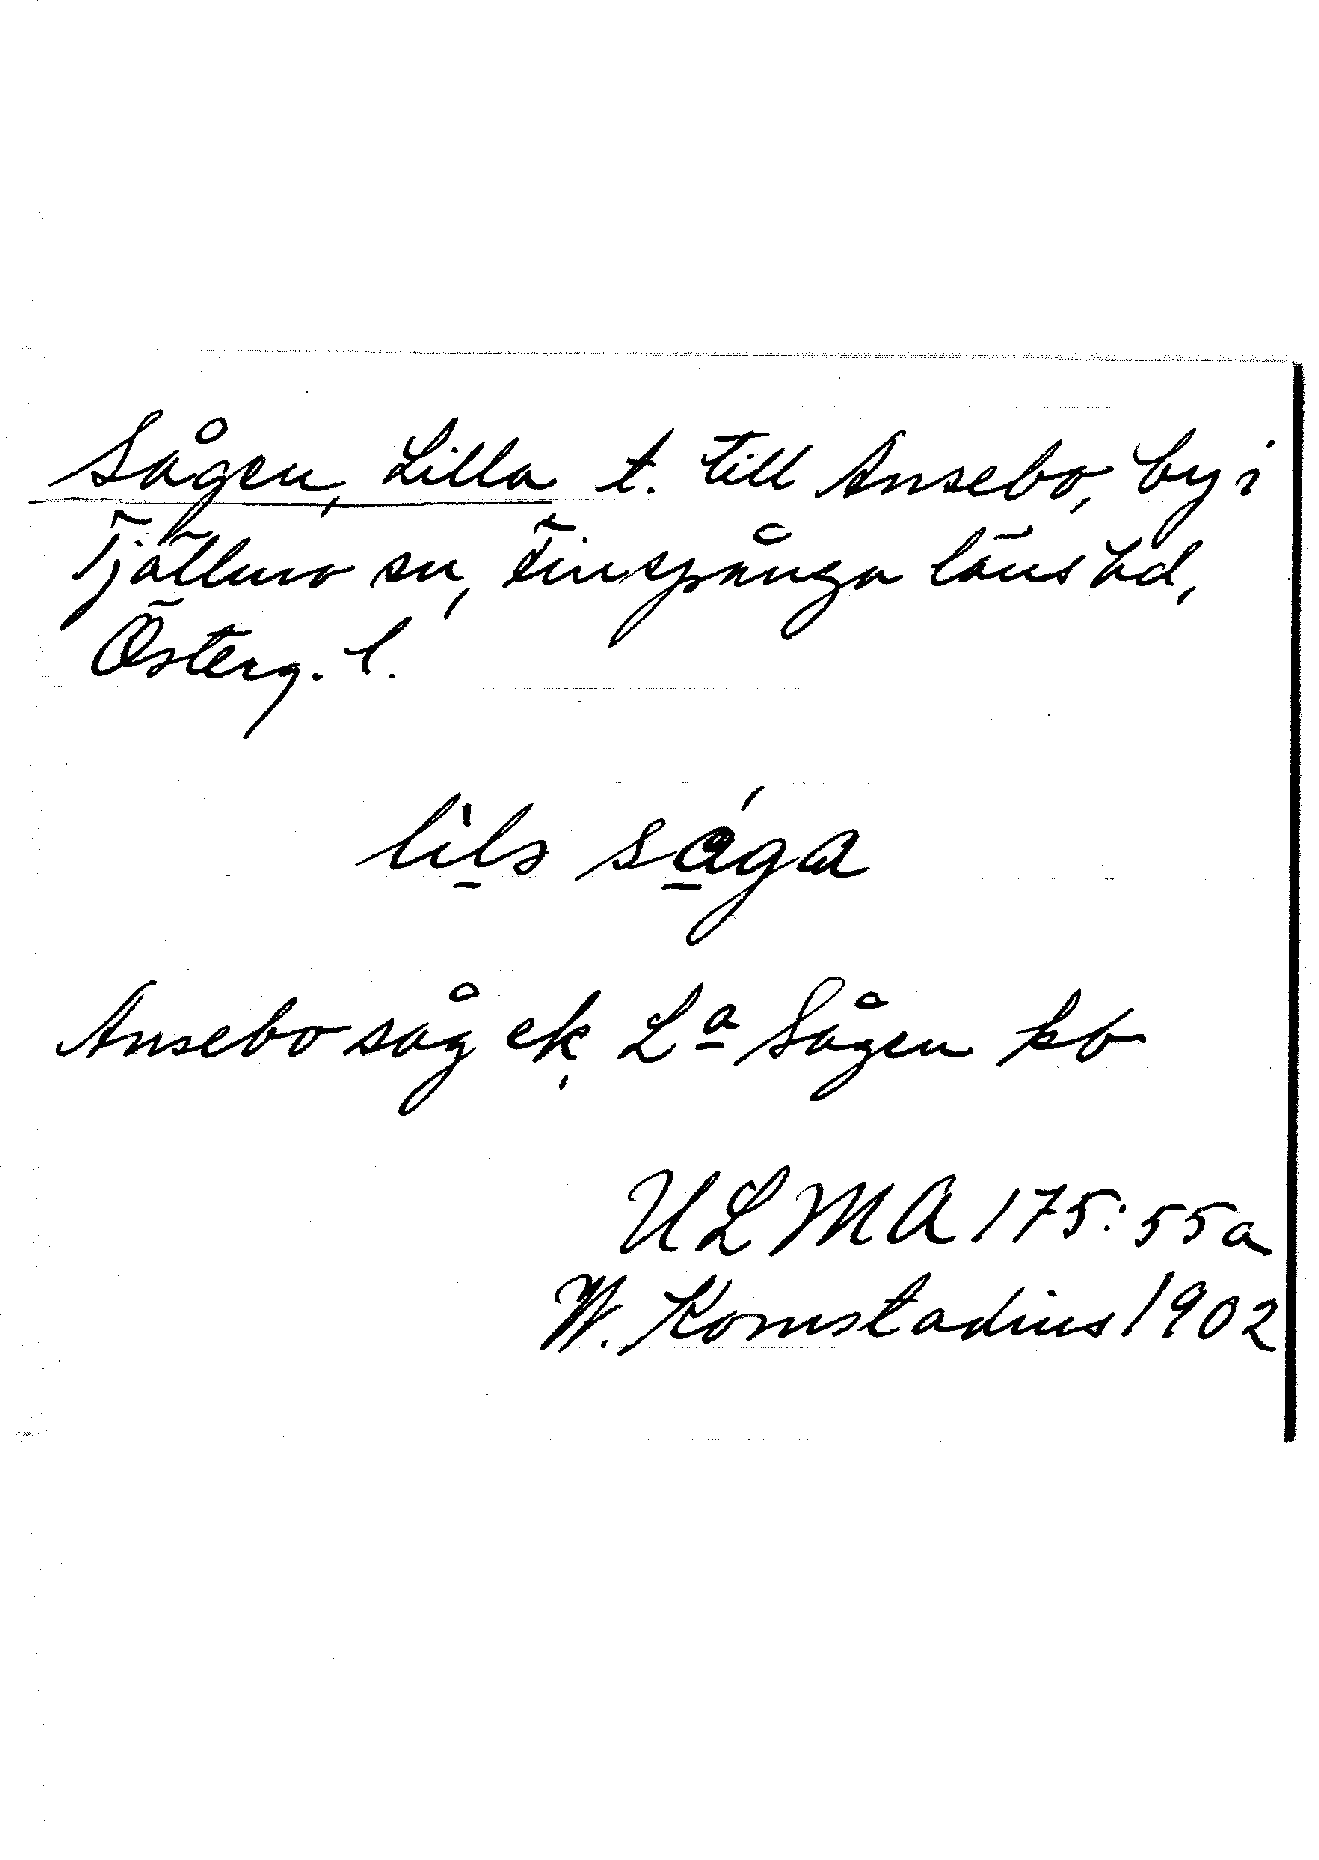 Sågen, Lilla t. till Ansebo, by i
Tjällmo sn, Finspånga läns hd,
Österg. l.
lils såga
Ansebo såg ek, Lª Sågen kb
ULMA 175:55a
W. Komstadius 1902